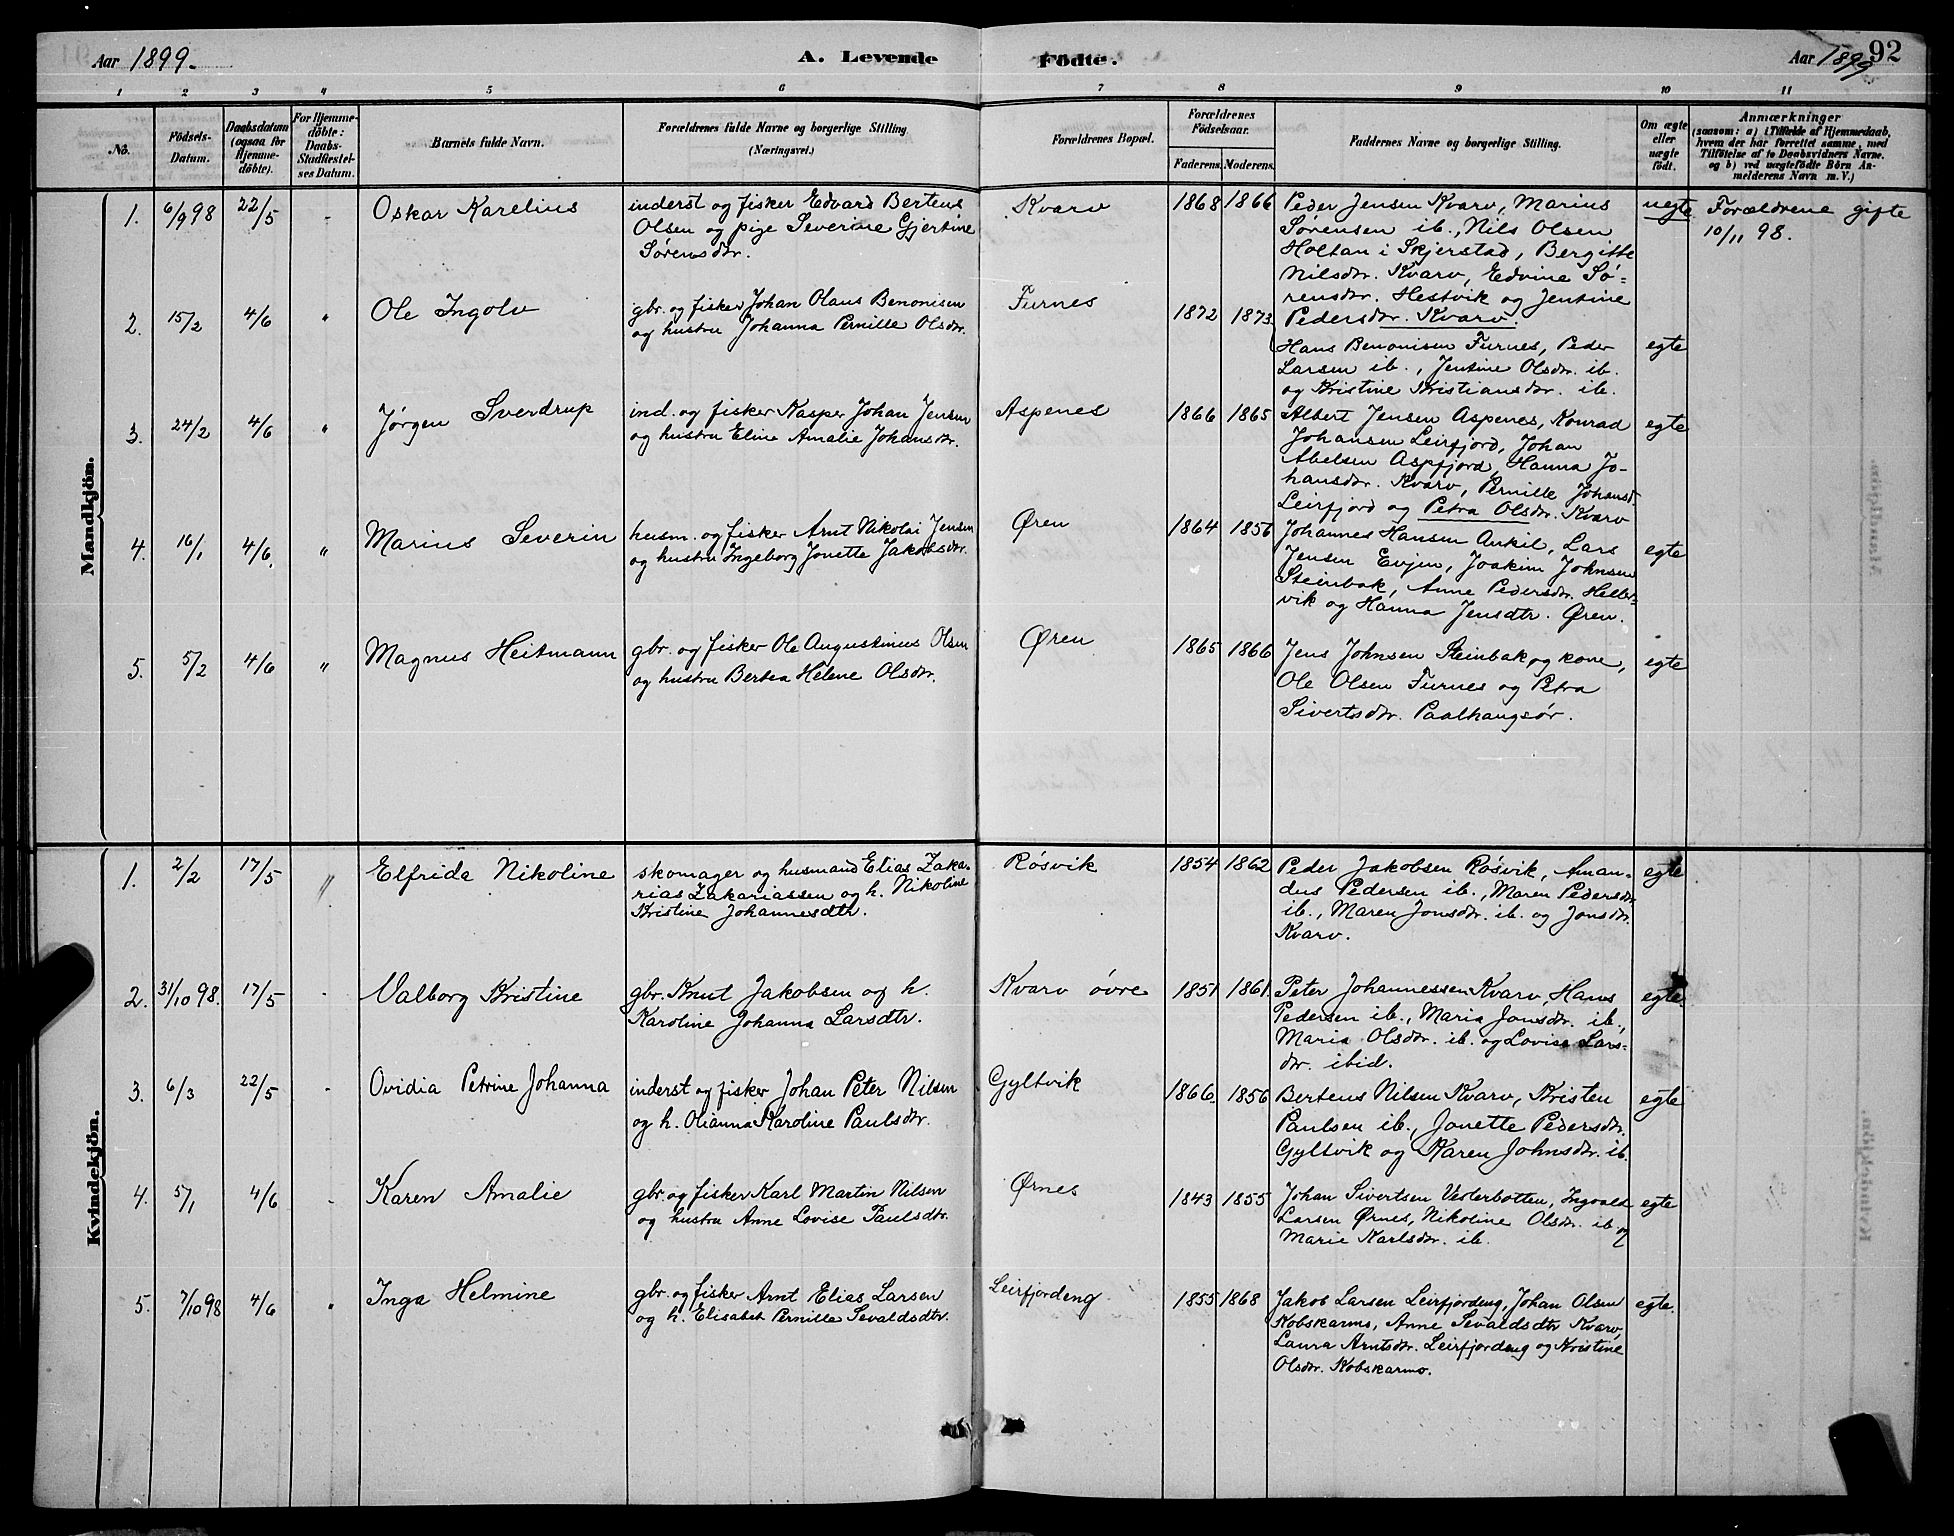 Aar 1899. A. Levende Födte. Aar 1899 92
1 2 3 4 5 6 7 8 9 10 11
No. Födsels-Datum. Daabsdatum (ogsaa for Hjemme-döbte). For Hjemme-döbte: Daabs-Stadfæstel-ses Datum. Barnets fulde Navn. Forældrenes fulde Navne og borgerlige Stilling (Næringsvei.) Forældrenes Bopæl. Forældrenes Födselsaar. Faderens. Moderens. Faddernes Navne og borgerlige Stilling. Om ægte eller uægte födt. Anmærkninger
(saasom: a) i Tilfælde af Hjemmedaab,
hvem der har forrettet samme, med
Tilföielse af to Daabsvidners Navne.
og b) ved uægtefödte Börn An-
melderens Navn m. V.)
Mandkjön.
1. 6/9 98 22/5 - Oskar Karelius
inderst og fisker Edvard Bertens
Olsen og pige Severine Gjertine
Sørensdtr.
Kvarv 1868 1866
Peder Jensen Kvarv, Marius
Sørensen ib., Nils Olsen
Holtan i Skjerstad, Bergitte
Nilsdtr. Kvarv, Edvine Sø-
rensdtr. Hestvik og Jentine
Pedersdtr. Kvarv.
uegte
Forældrene gifte
10/11 98.
2. 15/2 4/6 " Ole Ingolv
gbr. og fisker Johan Olaus Benonisen
og hustru Johanna Pernille Olsdtr.
Furnes 1872 1873
Hans Benonisen Furnes, Peder
Larsen ib., Jentine Olsdtr. ib.
og Kristine Kristiansdtr. ib.
egte
3. 24/2 4/6 " Jørgen Sverdrup
ind. og fisker Kasper Johan Jensen
og hustru Eline Amalie Johansdtr.
Aspenes 1866 1865
Albert Jensen Aspenes, Konrad
Johansen Leirfjord, Johan
Abelsen Aspfjord, Hanna Jo-
hansdtr. Kvarv, Pernille Johansd.
Leirfjord og Petra Olsdtr. Kvarv
egte
4. 16/1 4/6. " Marius Severin
husm. og fisker Arnt Nikolai Jensen
og hustru Ingeborg Jonette Jakobsdtr.
Øren 1864 1856
Johannes Hansen Ankil, Lars
Jensen Evjen, Joakim Johnsen
Steinbak, Anne Pedersdtr. Heller-
vik og Hanna Jensdtr. Øren.
egte
5. 5/2 4/6 " Magnus Heitmann
gbr. og fisker Ole Augustinus Olsen
og hustru Bertea Helene Olsdtr.
Øren 1865 1866
Jens Johnsen Steinbak og kone,
Ole Olsen Furnes og Petra
Sivertsdtr. Paalhaugsør.
egte
Kvindekjön.
1. 2/2 17/5 " Elfrida Nikoline
skomager og husmand Elias Zaka-
rias Zakariassen og h. Nikoline
Kristine Johannesdtr.
Røsvik 1854 1862
Peder Jakobsen Røsvik, Aman-
dus Pedersen ib., Maren Pedersdtr.
ib., Maren Jonsdtr. ib. og Jonsdtr.
Kvarv.
egte
2. 31/10 98. 17/5 - Valborg Kristine
gbr. Knut Jakobsen og h.
Karoline Johanna Larsdtr.
Kvarv øvre 1851 1861.
Peter Johannessen Kvarv, Hans
Pedersen ib., Maria Jonsdtr. ib.,
Maria Olsdtr. ib. og Lovise Lars-
dtr. ibid.
egte.
3. 6/3 22/5 - Ovidia Petrine Johanna
inderst og fisker Johan Peter Nilsen
og h. Olianna Karoline Paulsdtr.
Gyltvik 1866. 1856
Bertens Nilsen Kvarv, Kristen
Paulsen ib., Jonette Pedersdtr.
Gyltvik og Karen Johnsdtr. ib.
egte
4. 5/1 4/6 - Karen Amalie
gbr. og fisker Karl Martin Nilsen
og hustru Anne Lovise Paulsdtr.
Ørnes 1843 1855
Johan Sivertsen Vesterbotten, Ingvald
Larsen Ørnes, Nikoline Olsdtr. ib og
Marie Karlsdtr. ib.
egte
5. 7/10 98 4/6 " Inga Helmine
gbr. og fisker Arnt Elias Larsen
og h. Elisabet Pernille Sevaldsdtr.
Leirfjordeng 1855 1868
Jakob Larsen Leirfjordeng, Johan Olsen
Kobskarmo, Anne Sevaldsdtr Kvarv,
Laura Arntsdtr. Leirfjordeng og Kristine
Olsdtr. Kobskarmo.
egte.